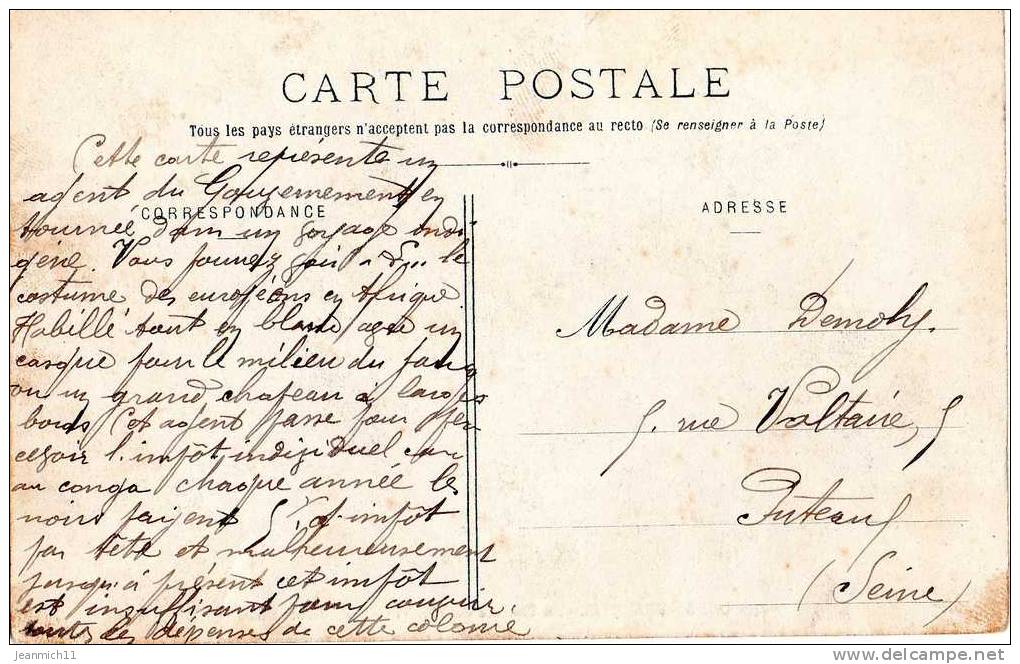 CARTE POSTALE
Tous les pays étrangers n'acceptent pas la correspondance au recto (Se renseigner à la Poste)
CORRESPONDANCE
ADRESSE
Cette carte représente un
agent du Gouvernement en
tournée dans un voyage indi-
gène. Vous pouvez voir le
costume des européens en Afrique
Habillé tout en blanc avec un
casque pour le milieu du jour
ou un grand chapeau à larges
bords Cet agent passe pour per
cevoir l'impôt individuel car
au congo chaque année les
noirs paient 5f d'impôt
par tête et malheureusement
jusqu'à présent cet impôt
est insuffisant pour couvrir
toutes les dépenses de cette colonie
Madame Demoly.
5. rue Voltaire, 5
Puteaux
(Seine)
jeanmich11
delcampe.net